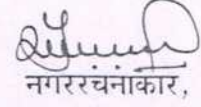 नगररचनाकार,